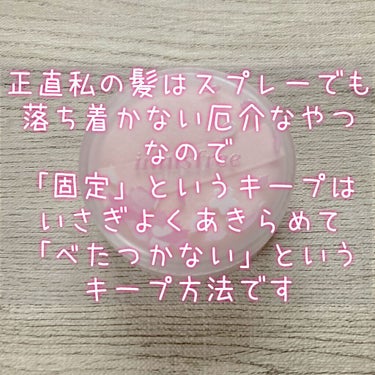 正直私の髪はスプレーでも
落ち着かない厄介なやつ
なので
「固定」というキープは
いさぎよくあきらめて
innisfree
「べたつかない」という
キープ方法です